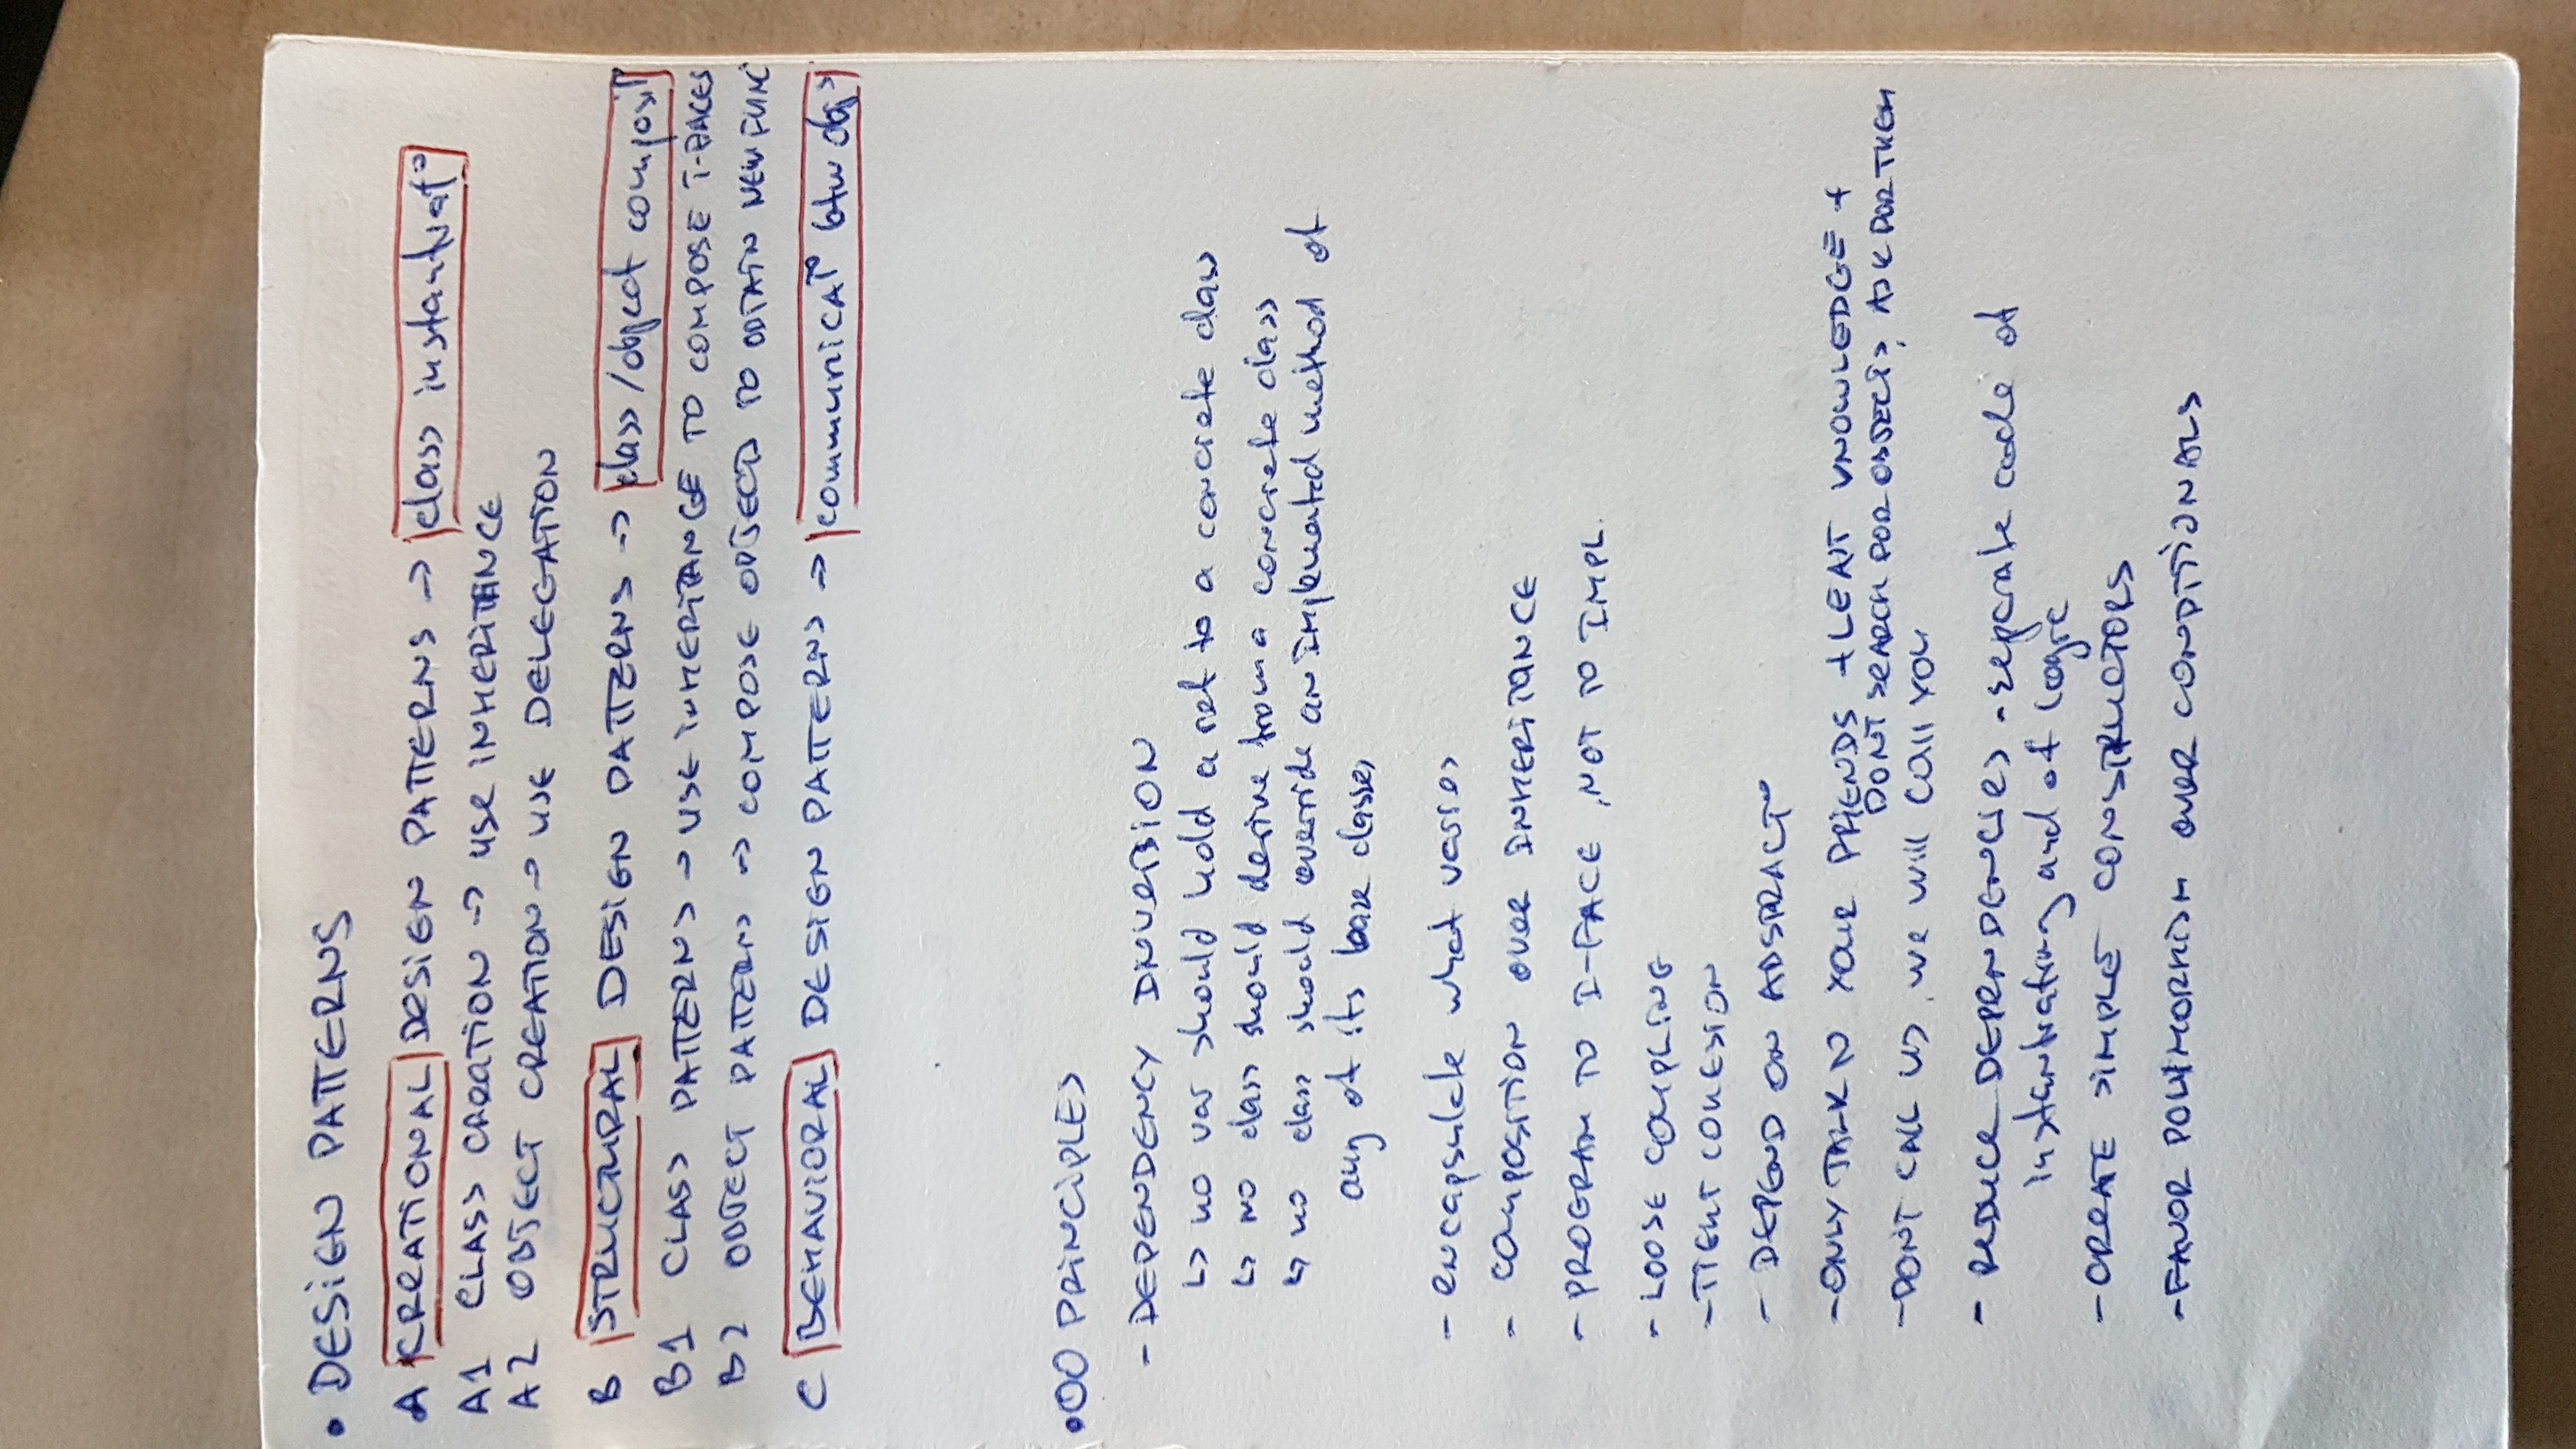 • DESIGN PATTERNS
A CREATIONAL DESIGN PATTERNS → class instantiat°
A1 CLASS CREATION → USE INHERITANCE
A2 OBJECT CREATION → USE DELEGATION
B STRUCTURAL DESIGN PATTERNS → class/object composit°
B1 CLASS PATTERNS → USE INHERITANGE TO COMPOSE I-FACES
B2 OBJECT PATTERNS → COMPOSE OBJECTS TO OBTAIN NEW FUNC
C BEHAVIORAL DESIGN PATTERNS → COMMUNICAT° btw obj>
• OO PRINCIPLES
- DEPENDENCY INVERSION
↳ no var should hold a ref to a concrete class
↳ no class should derive from a concrete class
↳ no class should override an implemented method of
any of its base classes
- encapsulate what varies
- COMPOSITION OVER INHERITANCE
- PROGRAM TO I-FACE, NOT TO IMPL.
- LOOSE COUPLING
- TIGHT COHESION
- DEPEND ON ABSTRACT°
- ONLY TALK TO YOUR FRIENDS + LEAST KNOWLEDGE +
DON'T SEARCH FOR OBJECTS, ASK FOR THEM
- DON'T CALL US, we will call YOU
- REDUCE DEPENDENCIES - separate code of
instantiating and of logic
- CREATE SIMPLE CONSTRUCTORS
- FAVOR POLYMORHISM OVER CONDITIONALS